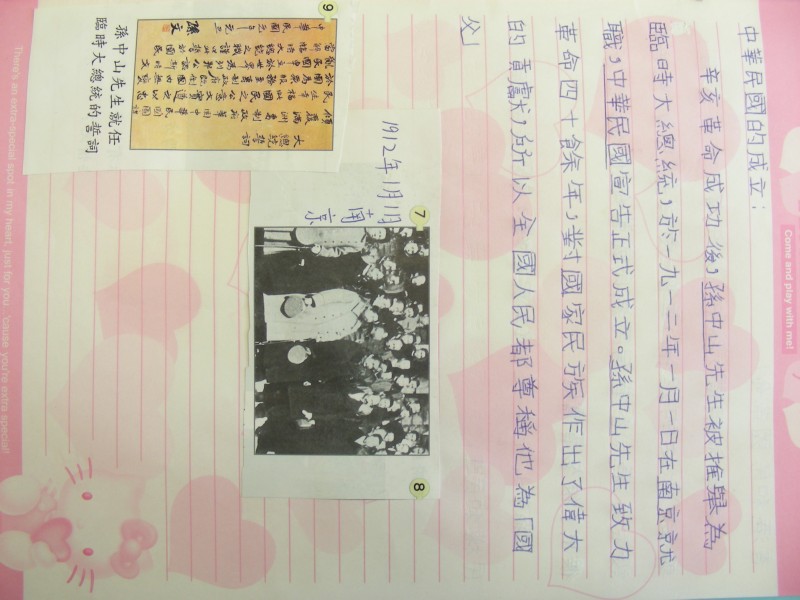 中華民國的成立：
辛亥革命成功後，孫中山先生被推舉為
臨時大總統，於一九一二年一月一日在南京就
職，中華民國宣告正式成立。孫中山先生致力
革命四十餘年，對國家民族作出了偉大
的貢獻，所以全國人民都尊稱他為「國
父」
1912年1月1日
南京
7
8
9
大總統誓詞
孫文
孫中山先生就任
臨時大總統的誓詞
Come and play with me!
There's an extra-special spot in my heart, just for you 'cause you're extra special!